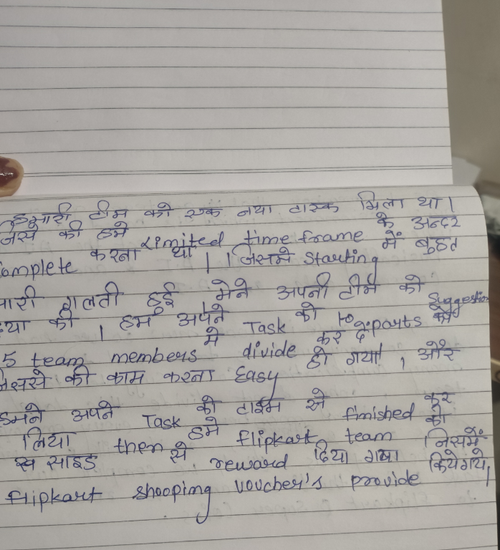 हमारी टीम को एक नया टास्क मिला था।
जिसे की हमे Limited time frame के अन्दर
complete करना था। जिसमे starting में बहुत
सारी गलती हुई मेने अपनी टीम को Suggestion
दिया की, हम अपने Task को 10 parts को
5 team members मे divide कर दे
जिससे की काम करना Easy हो गया, और
हमने अपने Task को टाईम से finished कर
लिया then हमे flipkart team की
साइड से reward दिया गया जिसमें
flipkart shooping voucher's provide कियेगये,